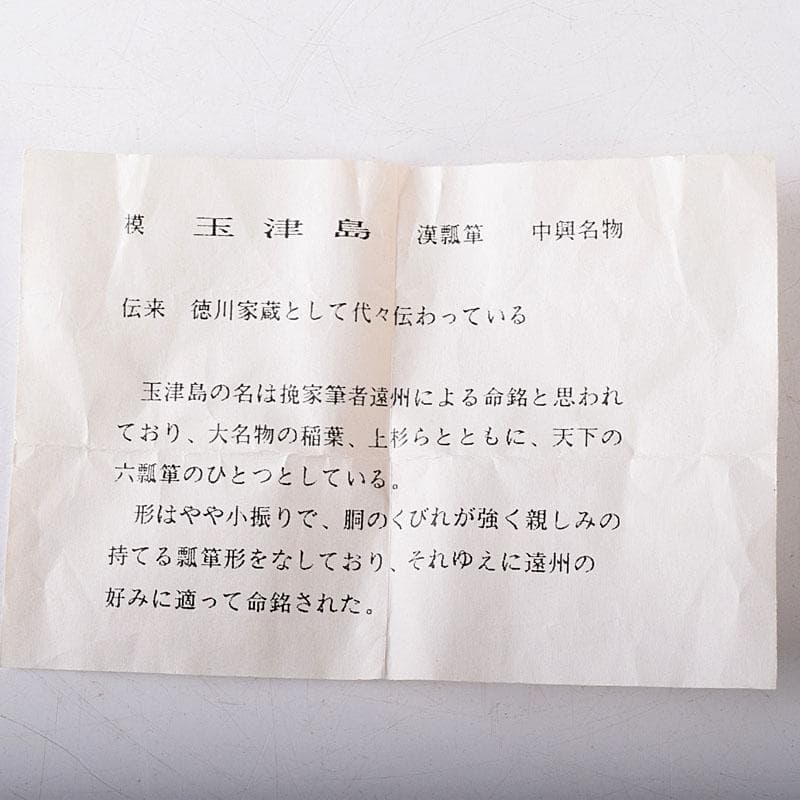 模 玉津島 漢瓢箪 中興名物
伝来 徳川家蔵として代々伝わっている
玉津島の名は挽家筆者遠州による命銘と思われ
ており、大名物の稲葉、上杉らとともに、天下の
六瓢箪のひとつとしている。
形はやや小振りで、胴のくびれが強く親しみの
持てる瓢箪形をなしており、それゆえに遠州の
好みに適って命銘された。